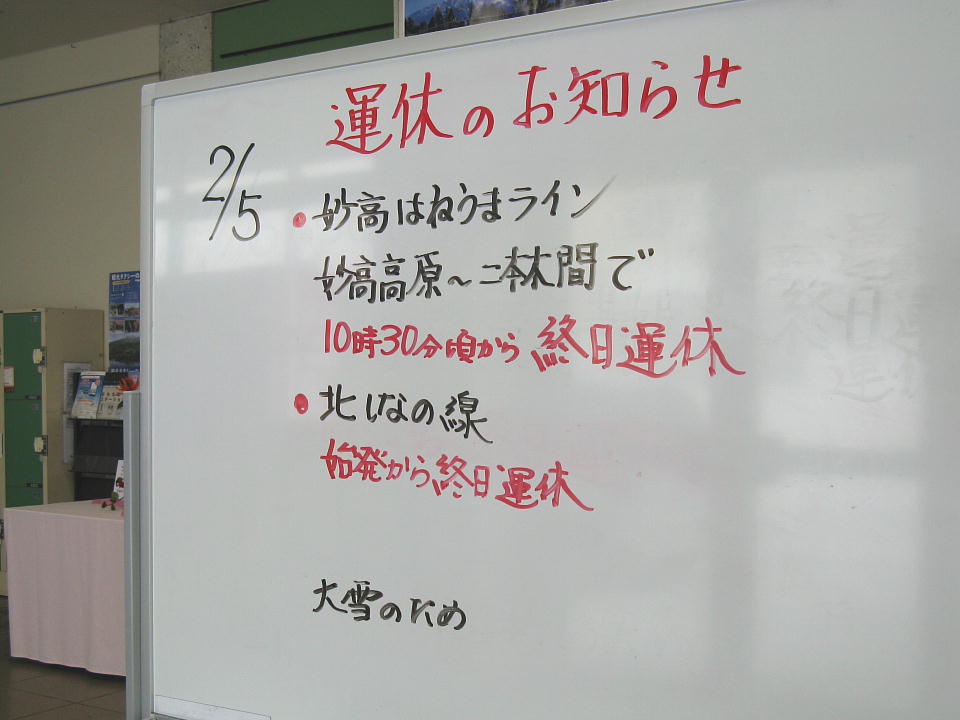 運休のお知らせ
2/5
• 妙高はねうまライン
妙高高原～二本木間で
10時30分頃から 終日運休
• 北しなの線
始発から終日運休
大雪のため